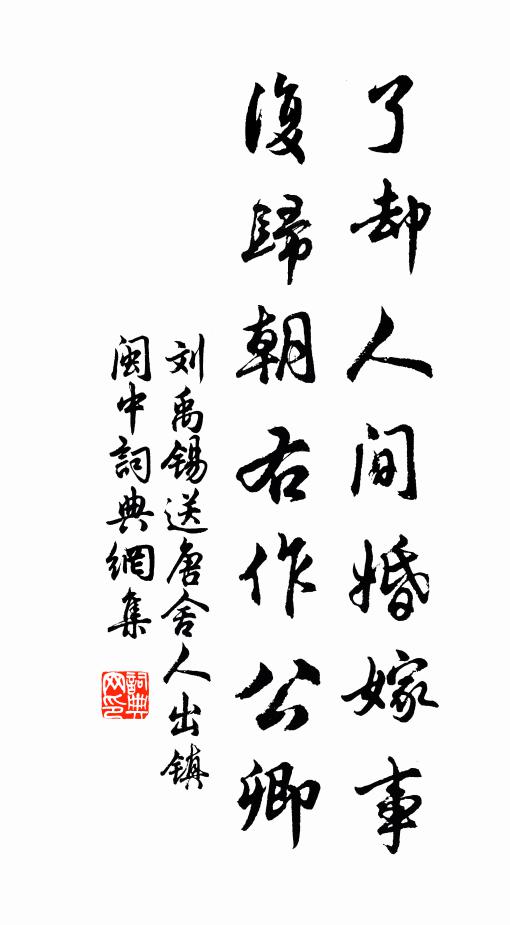 了却人间婚嫁事
復歸朝右作公卿
刘禹锡送唐舍人出镇
闽中詞典網集
詞典网印